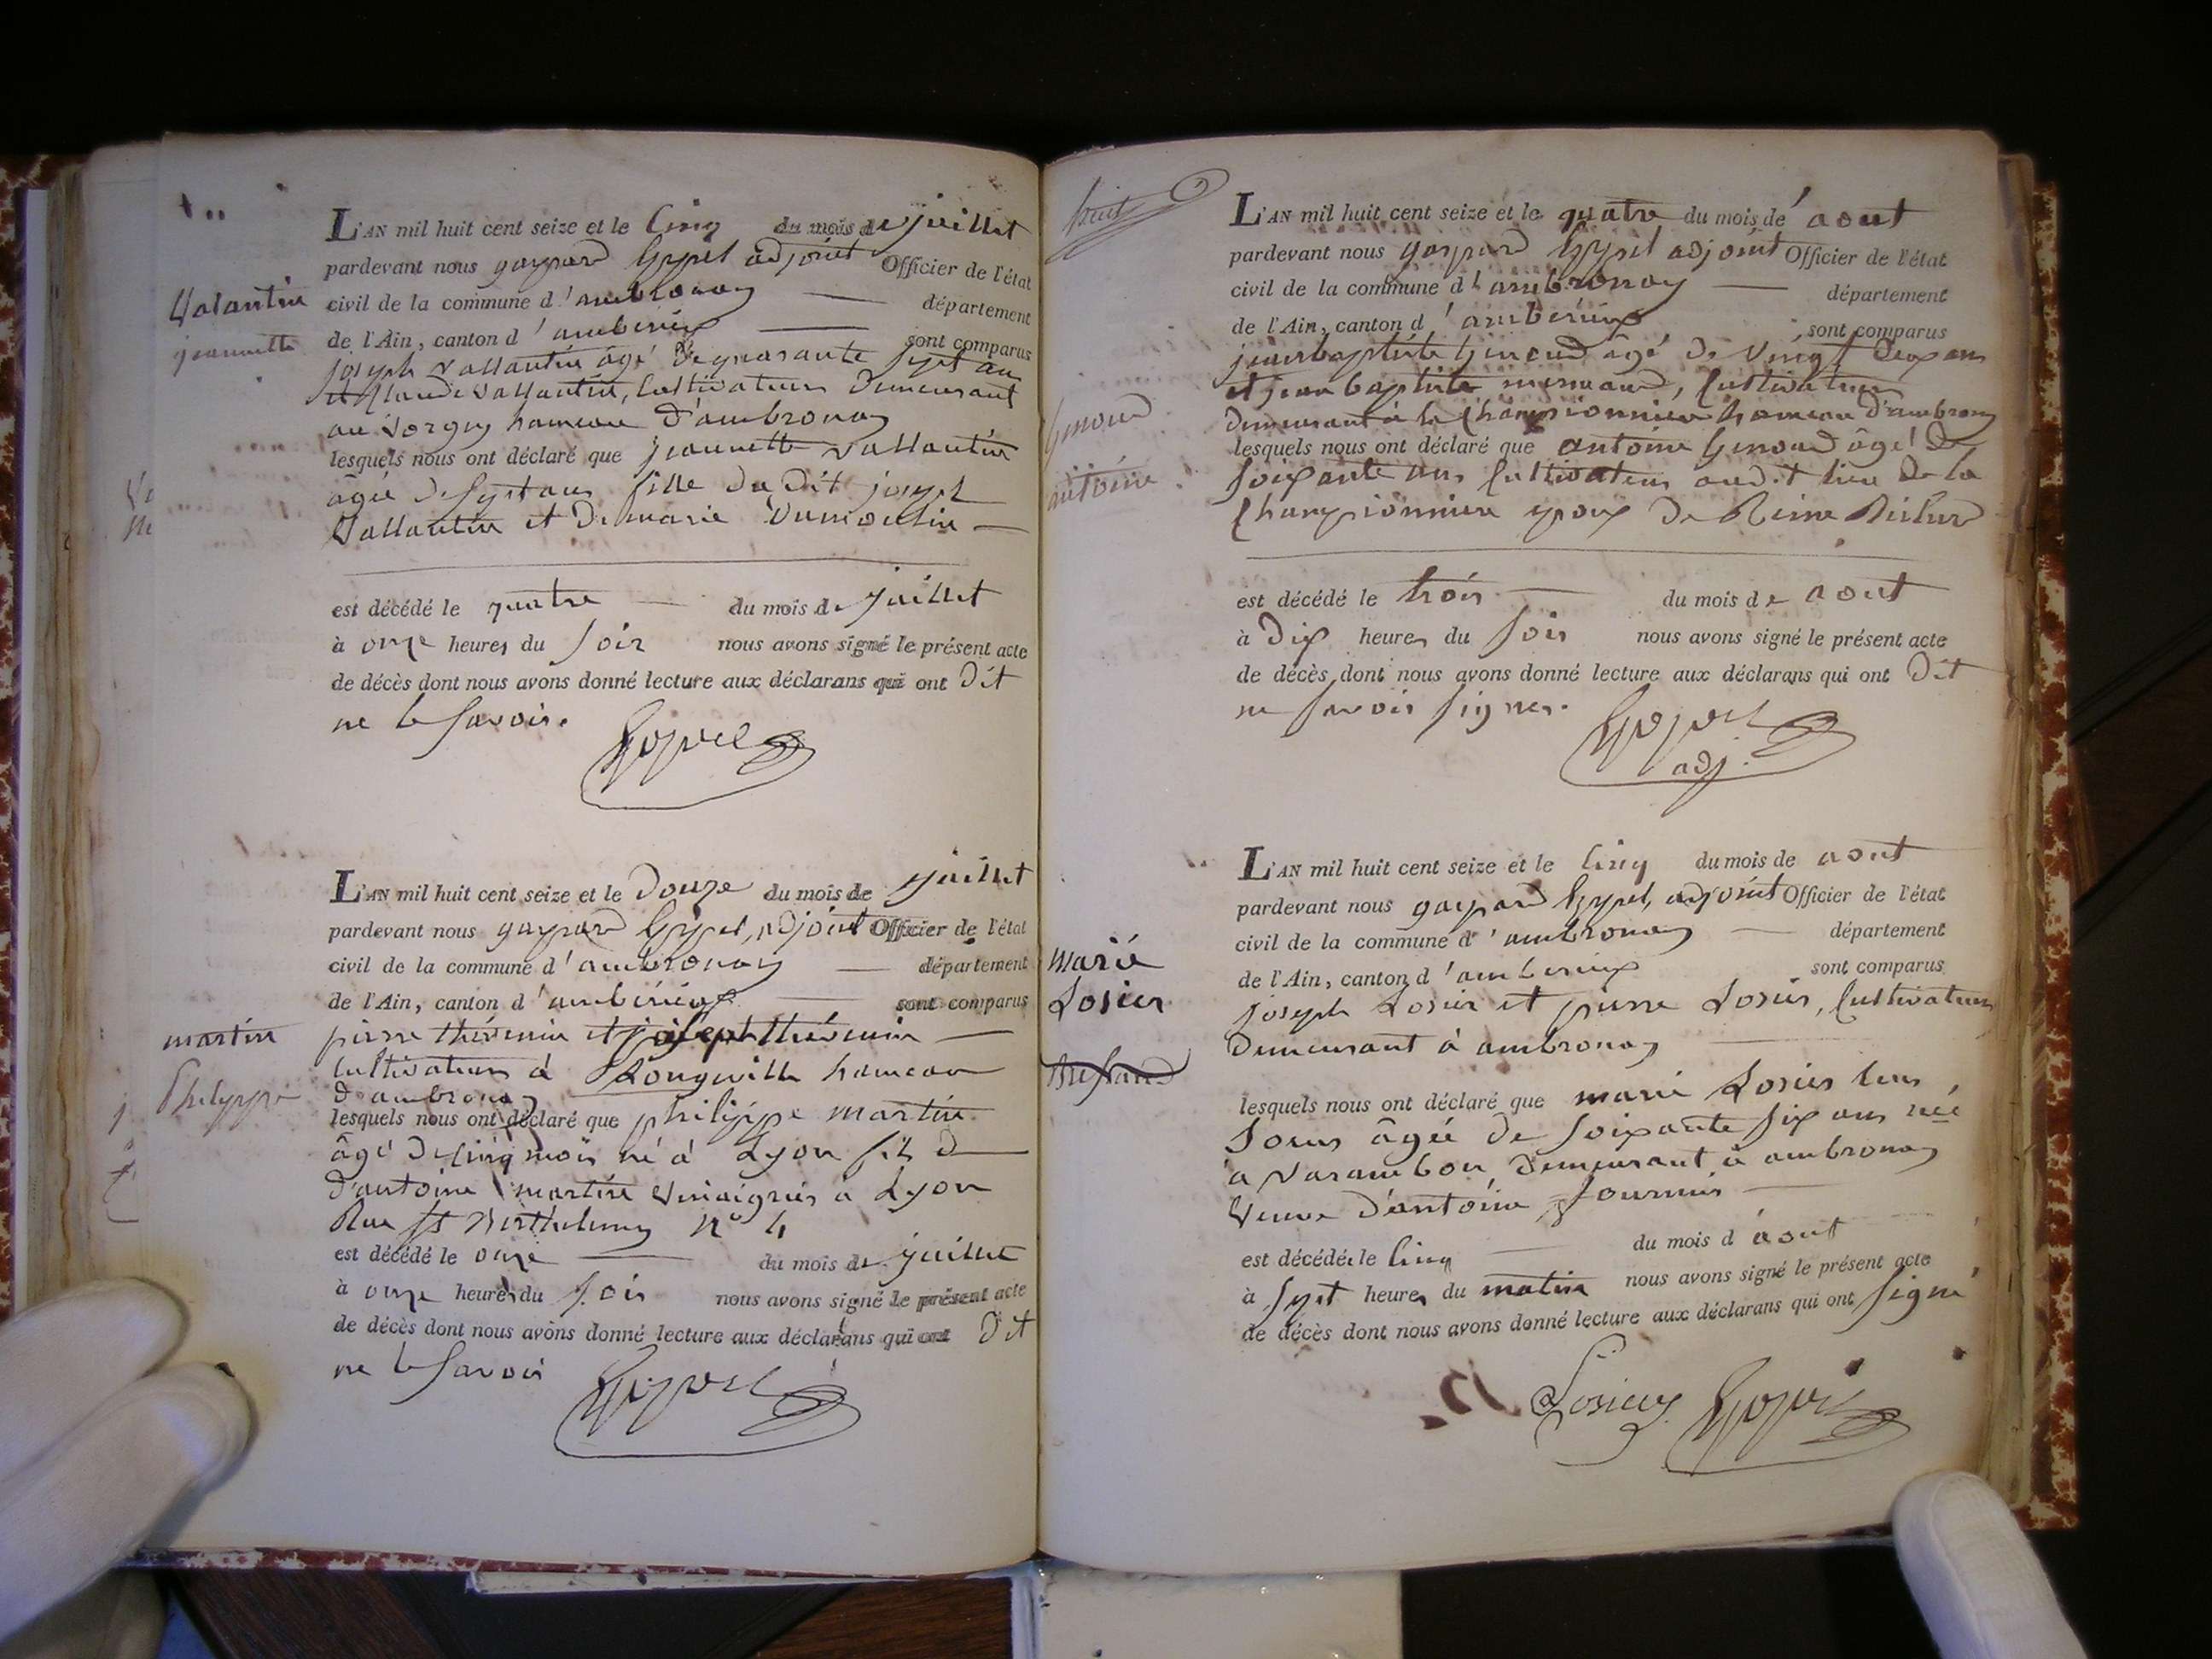 L'AN mil huit cent seize et le cinq du mois de juillet
pardevant nous gaspard adjoint Officier de l'état
civil de la commune d'ambronay département
de l'Ain, canton d'amberieux sont comparus
joseph vallantin âgé de quarante sept ans
et claude vallantin, cultivateurs demeurant
au hameau d'ambronay
lesquels nous ont déclaré que jeannette vallantin
âgée de sept ans fille du dit joseph
vallantin et de marie dumoulin
est décédé le quatre du mois de juillet
à onze heures du soir nous avons signé le présent acte
de décès dont nous avons donné lecture aux déclarans qui ont dit
ne le savoir.
Valantin
jeannette
L'AN mil huit cent seize et le douze du mois de juillet
pardevant nous gaspard adjoint Officier de l'état
civil de la commune d'ambronay département
de l'Ain, canton d'amberieux sont comparus
pierre thévenin et joseph thévenin
cultivateurs à Longeville hameau
d'ambronay
lesquels nous ont déclaré que philippe martin
âgé de cinq mois né à Lyon fils d
d'antoine martin vinaigrier à Lyon
Rue st Berthelemy n° 4
est décédé le onze du mois de juillet
à onze heures du soir nous avons signé le présent acte
de décès dont nous avons donné lecture aux déclarans qui ont dit
ne le savoir
martin
Philippe
huit
L'AN mil huit cent seize et le quatre du mois de aout
pardevant nous gaspard adjoint Officier de l'état
civil de la commune d'ambronay département
de l'Ain, canton d'amberieux sont comparus
jean baptiste Genoud âgé de vingt deux ans
et jean baptiste cultivateurs
demeurant à la Championnière hameau d'ambronay
lesquels nous ont déclaré que antoine Genoud âgé de
soixante ans cultivateur audit lieu de la
Championnière epoux de Reine
est décédé le trois du mois de aout
à dix heures du soir nous avons signé le présent acte
de décès dont nous avons donné lecture aux déclarans qui ont dit
ne savoir signer.
adj.
Genoud
antoine
L'AN mil huit cent seize et le cinq du mois de aout
pardevant nous gaspard adjoint Officier de l'état
civil de la commune d'ambronay département
de l'Ain, canton d'amberieux sont comparus
joseph Losier et pierre Losier, cultivateurs
demeurant à ambronay
lesquels nous ont déclaré que marie Losier leur
soeur âgée de soixante six ans née
à varambon demeurant à ambronay
veuve d'antoine fournier
est décédée le cinq du mois d'aout
à sept heures du matin nous avons signé le présent acte
de décès dont nous avons donné lecture aux déclarans qui ont signé
marie
Losier